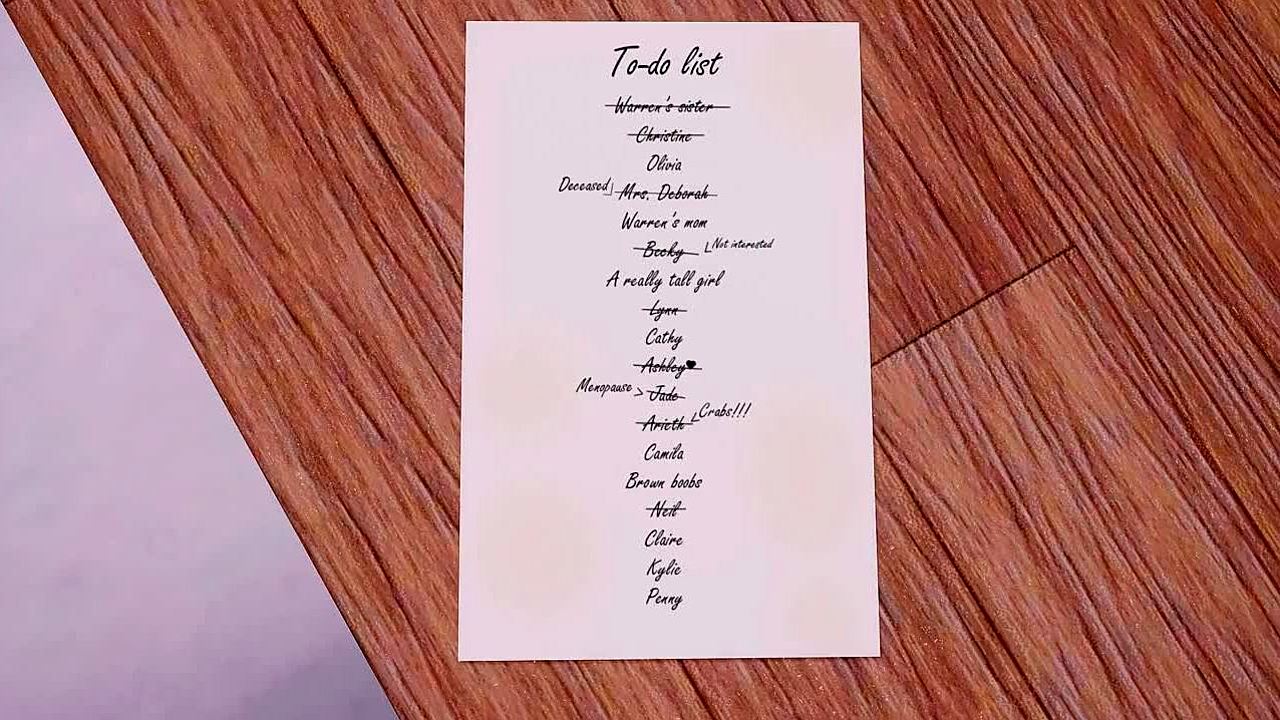 To-do list
Warren's sister
Christine
Olivia
Deceased
Mrs. Deborah
Warren's mom
Becky
Not interested
A really tall girl
Lynn
Cathy
Ashley♥
Menopause
Jade
Arieth
Crabs!!!
Camila
Brown boobs
Neil
Claire
Kylie
Penny